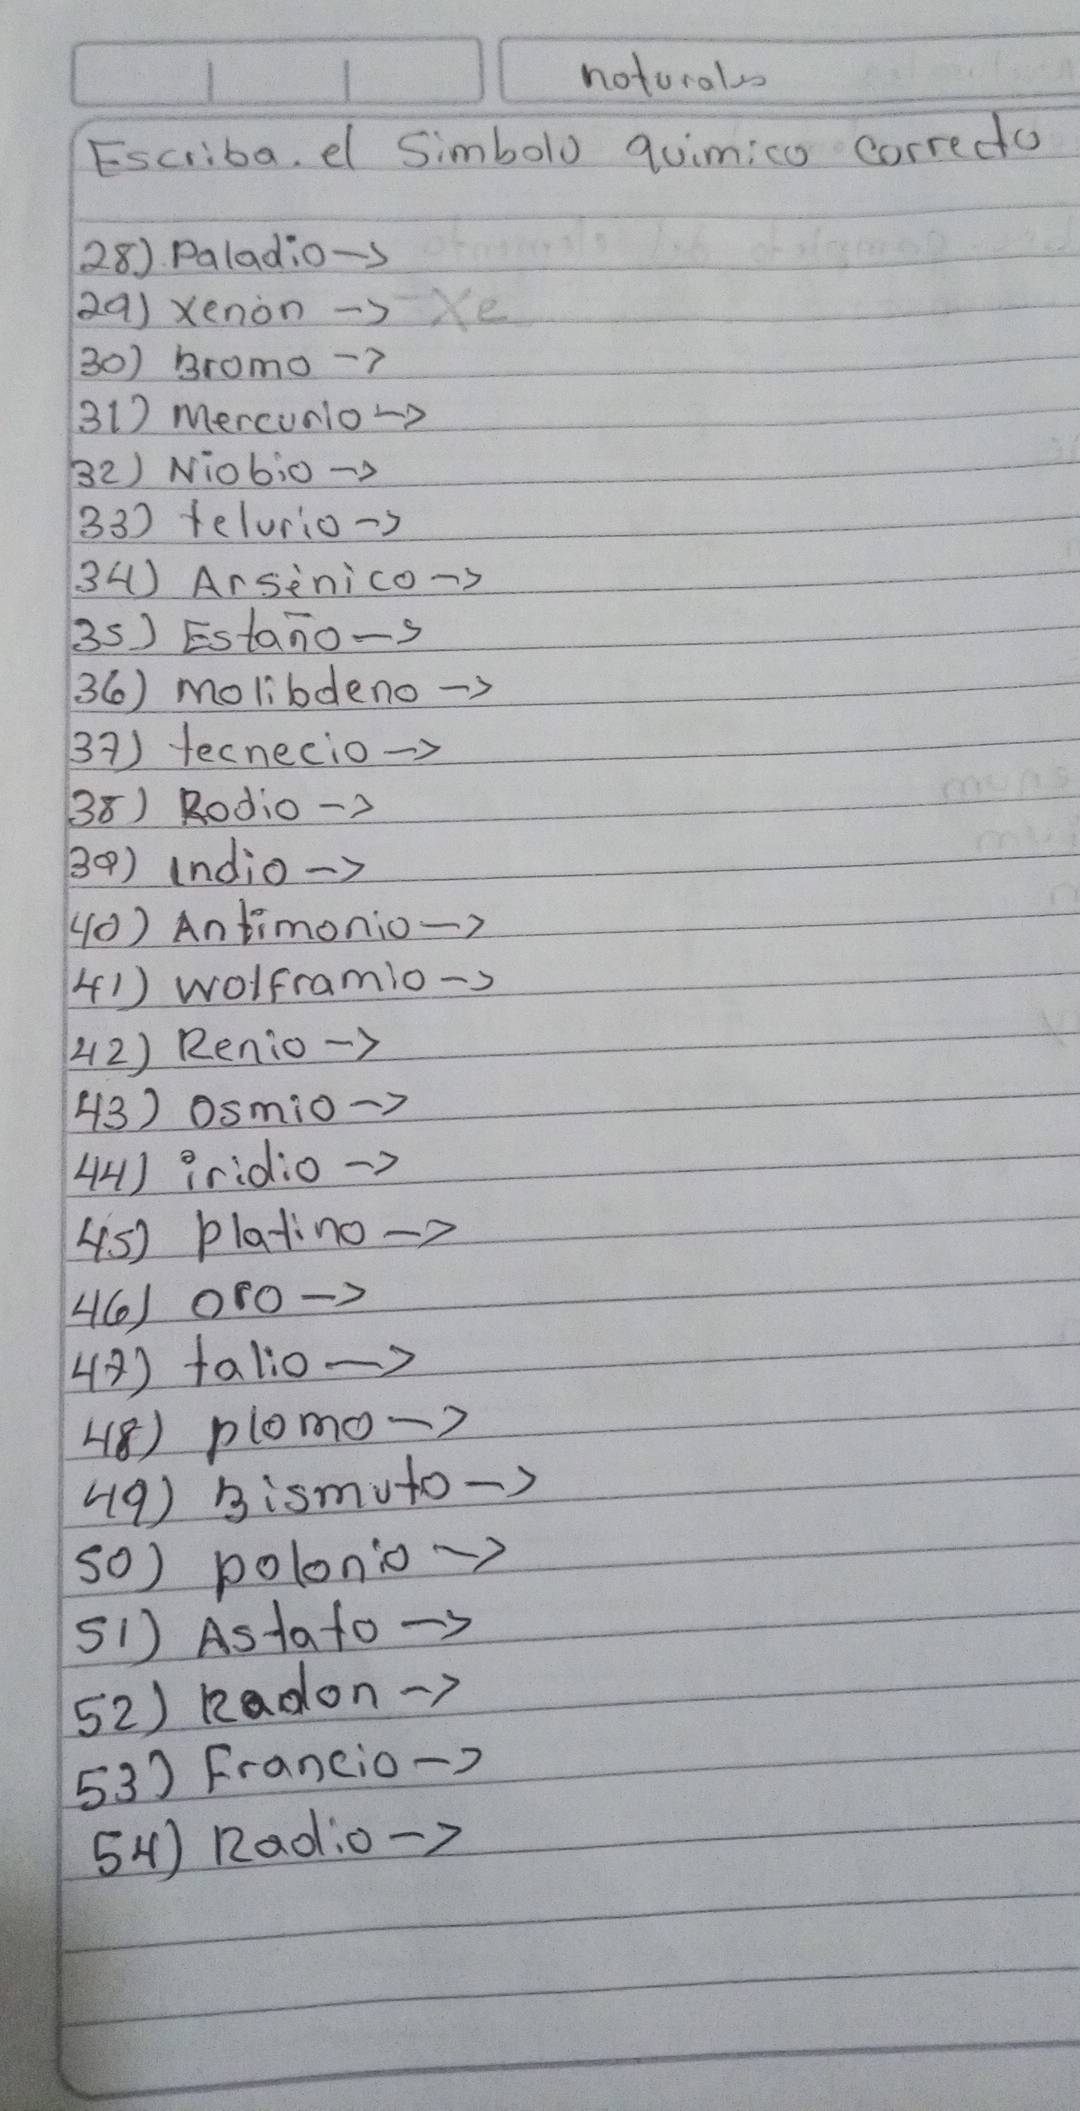 naturales
Escriba. el Simbolo quimico correcto
28) Paladio ->
29) xenòn -> Xe
30) Bromo ->
31) Mercurio ->
32) Niobio ->
33) telurio ->
34) Arsènico ->
35) Estaño ->
36) Molibdeno ->
37) tecnecio ->
38) Rodio ->
39) indio ->
40) Antimonio ->
41) wolframio ->
42) Renio ->
43) Osmio ->
44) iridio ->
45) platino ->
46) oro ->
47) talio ->
48) plomo ->
49) Bismuto ->
50) polonio ->
51) Astato ->
52) Radon ->
53) Francio ->
54) Radio ->